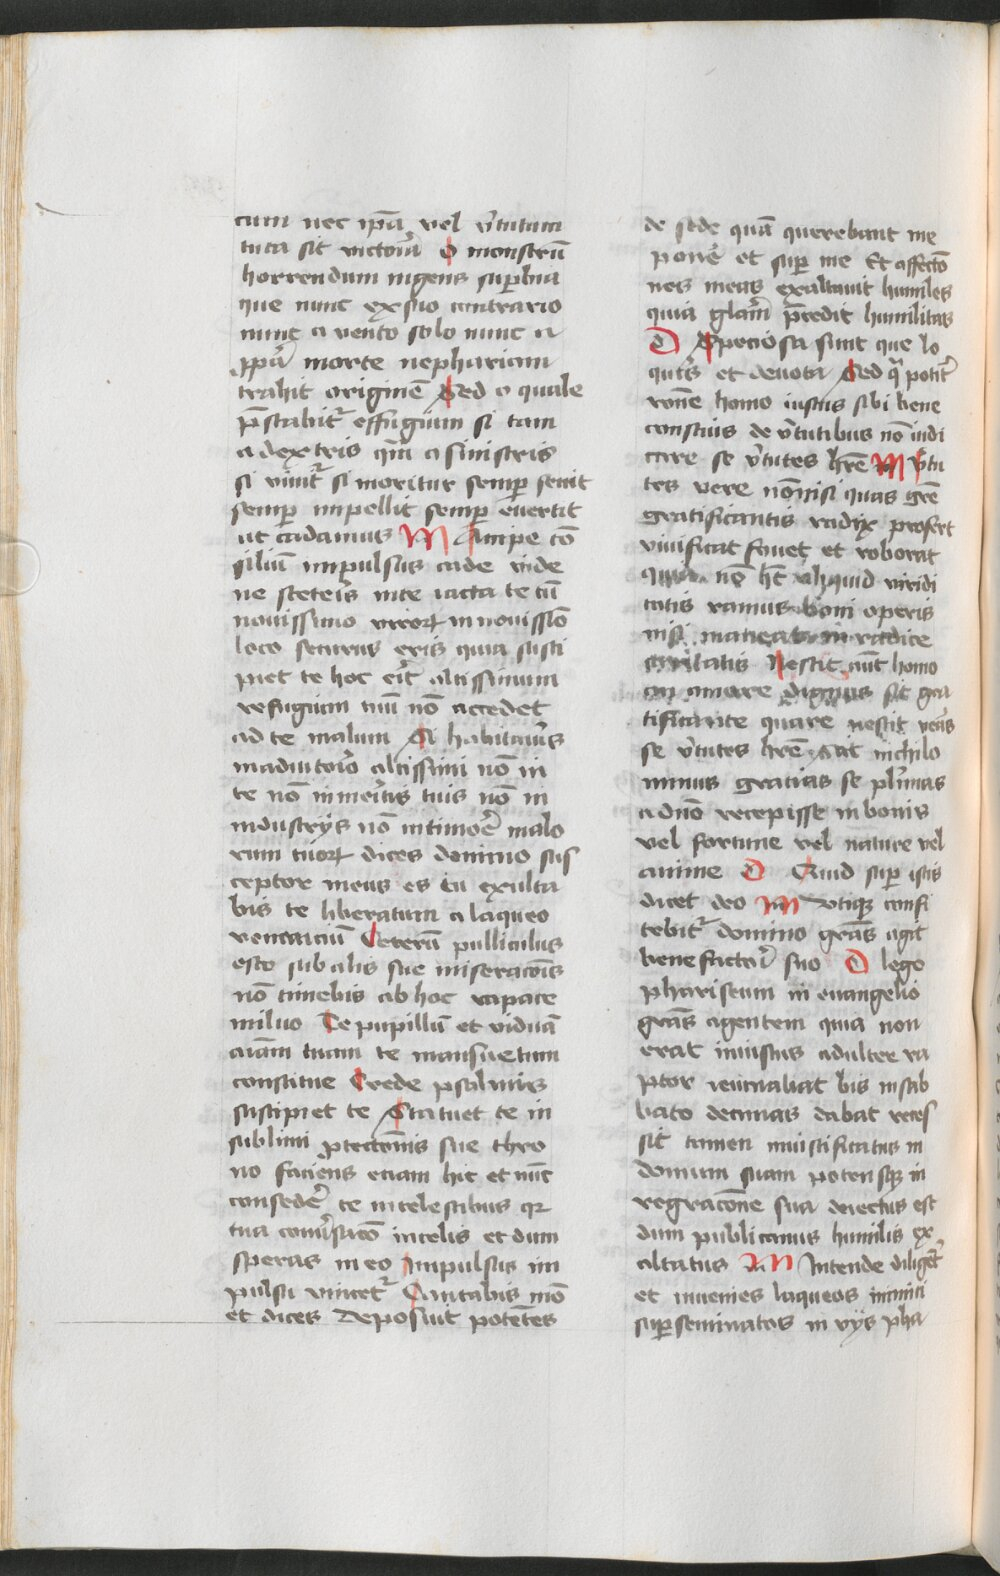 cum nec ip̄a vel v̓tutum
tuta sit victor̓ia O monstrū
horrendum ingens suꝑbia
que nunc ex suo contrario
nunc a vento solo nunc a
ꝓpa morte nephariam
trahit originē Sed a quale
p̄stabit̓ effugium si tam
a dextris qm̄ a sinistris
si vivit̓ si moritur semꝑ sevit
semꝑ impellit semꝑ evertit
ut cadamus M Accipe cō
siliū impulsus cade vide
ne steteris nite iacta te cū
novissimo viroꝝ in novissīo
loco securus eris quia susci
piet te hoc erit̓ altissimum
refugium tuū nō accedet
ad te malum Si habitaver̓s
in adiutorio altissimi nō in
te nō in meritis tuis nō in
industrijs nō in timore malo
rum tuoꝝ dices domino sus
ceptor meus es tu exulta
bis te liberatum a laqueo
venanciū Ceterū pulliculus
esto sub alis sue miseracōis
nō timebis ab hoc rapace
milvo Te pupillū et viduā
aīam tuam te mansuetum
constitue Crede psalmis
suscipiet te Statuet te in
sublimi ꝓtectōnis sue thro
no faciens etiam hic et nūc
consedere te in celestibus qꝛ
tua conv̓sacō in celis et dum
speras in eo Impulsus im
pulsu vincet̓ Cantabis mō
et dices Deposuit potētes
de sede quā querebant me
ponē et suꝑ me Et affectō
nes meas exaltavit humiles
quia glām p̄cedit humilitas
D Speciosa sunt que lo
queris et devota Sed qͣ potit̓
rōne homo iustus sibi bene
conscius de v̓tutibus nō iudi
care se v̓tutes hr̄e M v̓tu
tes vere nō nisi quas grē
gratificantis radix profert
vivificat fovet et roborat
quia nō hꝫ aliquid viridi
tatis ramus boni operis
nisi maneat in radice
caritatis Nescit aūt homo
an amore dignus sit gra
tificante quare nescit veris
se v̓tutes hr̄e Scit nichilo
minus gratias se plurimas
a dno recepisse in bonis
vel fortune vel nature vel
anime D Quid suꝑ istis
dicet deo M Utiqꝫ confi
tebit̓ domino grās agit
benefactori suo D lego
phariseum in evangelio
grās agentem quia non
erat iniustus adulter ra
ptor ieiunabat bis in sab
bato decimas dabat reces
sit tamen iniustificatus in
domum suam potensqꝫ in
regracōne sua deiectus est
dum publicanus humilis ex
altatus M Intende diligēt̓
et invenies laqueos inimici
suꝑseminatos in vijs pha